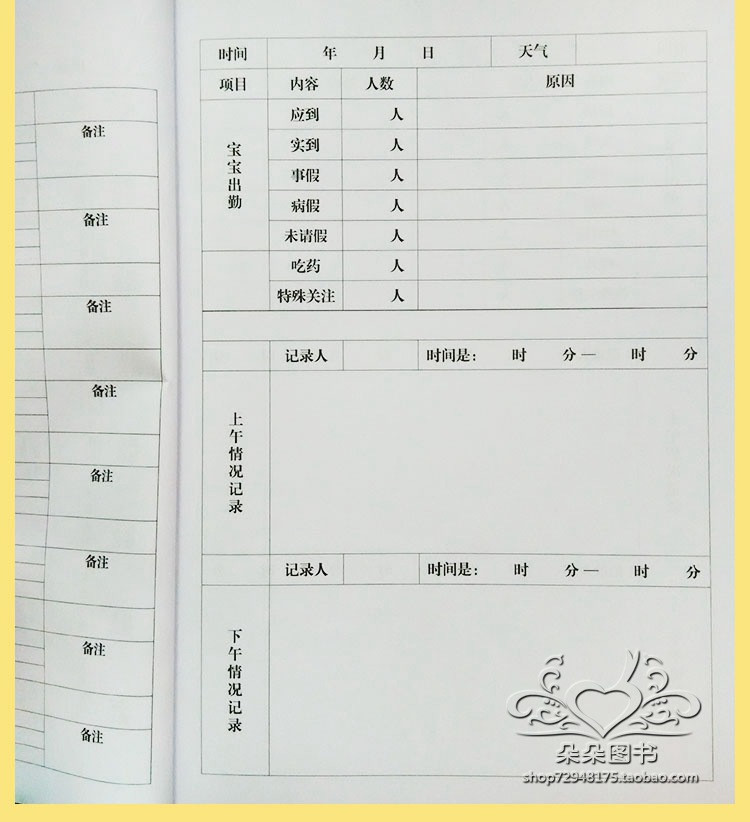 备注
备注
备注
备注
备注
备注
备注
备注
时间 年 月 日 天气
项目 内容 人数 原因
宝宝出勤
应到 人
实到 人
事假 人
病假 人
未请假 人
吃药 人
特殊关注 人
记录人 时间是： 时 分 — 时 分
上午情况记录
记录人 时间是： 时 分 — 时 分
下午情况记录
朵朵图书
shop72948175.taobao.com